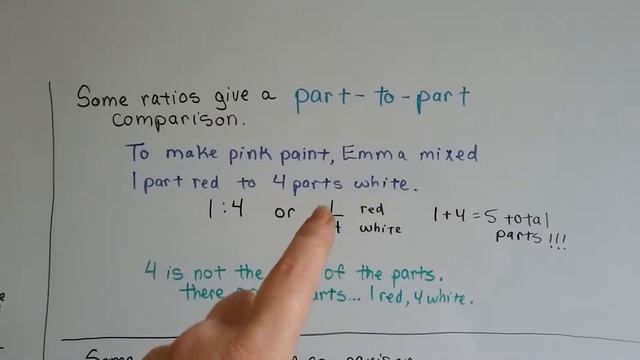 Some ratios give a part-to-part
comparison.
To make pink paint, Emma mixed
1 part red to 4 parts white.
1:4 or 1/4 red white 1+4=5 total
parts!!!
4 is not the of the parts.
there parts... 1 red, 4 white.